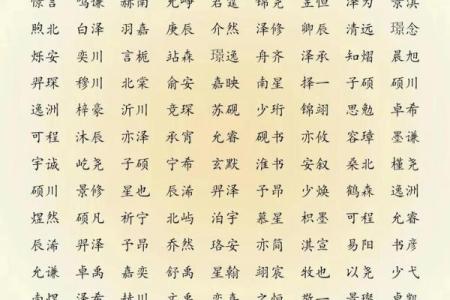 惊 鸣谦 赫南 允峥 君霆 泽修 星恒 泽为 景淇
煦北 白泽 羽嘉 庚辰 介然 泽修 卿辰 清远 璟念
烁安 奕川 言栀 站森 璟逸 舟齐 泽承 知熠 晨旭
羿琛 穆川 北棠 俞安 嘉映 南星 择一 子硕 硕川
逸洲 梓豪 沂川 竞琛 苏砚 少珩 锦翊 思勉 卓希
可程 沐辰 亦泽 承宵 允睿 砚书 亦攸 容璋 墨谦
宇诚 屹尧 子硕 宁希 玄默 淮书 安叙 桑北 槿尧
硕川 景修 星也 辰浠 羿泽 予昂 少焕 鹤森 逸洲
煜然 硕凡 祈宁 北屿 泊宇 慕星 枳墨 可程 允睿
辰浠 羿泽 予昂 乔然 珞安 亦简 淇宣 易阳 书彦
允谦 卓禹 嘉奕 舒禹 星翰 翊宸 牧也 以墨 少弋
南煜 泽希 川 文禹 嘉 之恒 景 景 卓凯